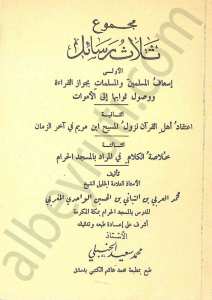 مجموع
ثلاث رسائل
الأولى
إسعاف المسلمين والمسلمات بجواز القراءة
ووصول ثوابها إلى الأموات
الثانية
اعتقاد أهل القرآن نزول المسيح ابن مريم في آخر الزمان
الثالثة
خلاصة الكلام في المراد بالمسجد الحرام
تأليف
الأستاذ العلامة الجليل الشيخ
محمد العربي بن التباني بن الحسين الواحدي المغربي
المدرس بالمسجد الحرام بمكة المكرمة
أشرف على إعادة طبعه
الأستاذ
محمد سعيد
طبع بمطبعة محمد هاشم الكتبي بدمشق